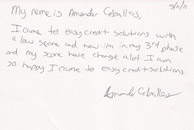 5/11/11
My name is Amander Ceballos,
I came to easy credit solutions with
a low score and now im in my 3rd phase
and my score have change alot I am
so happy I came to easy credit solutions.
Amander Ceballos